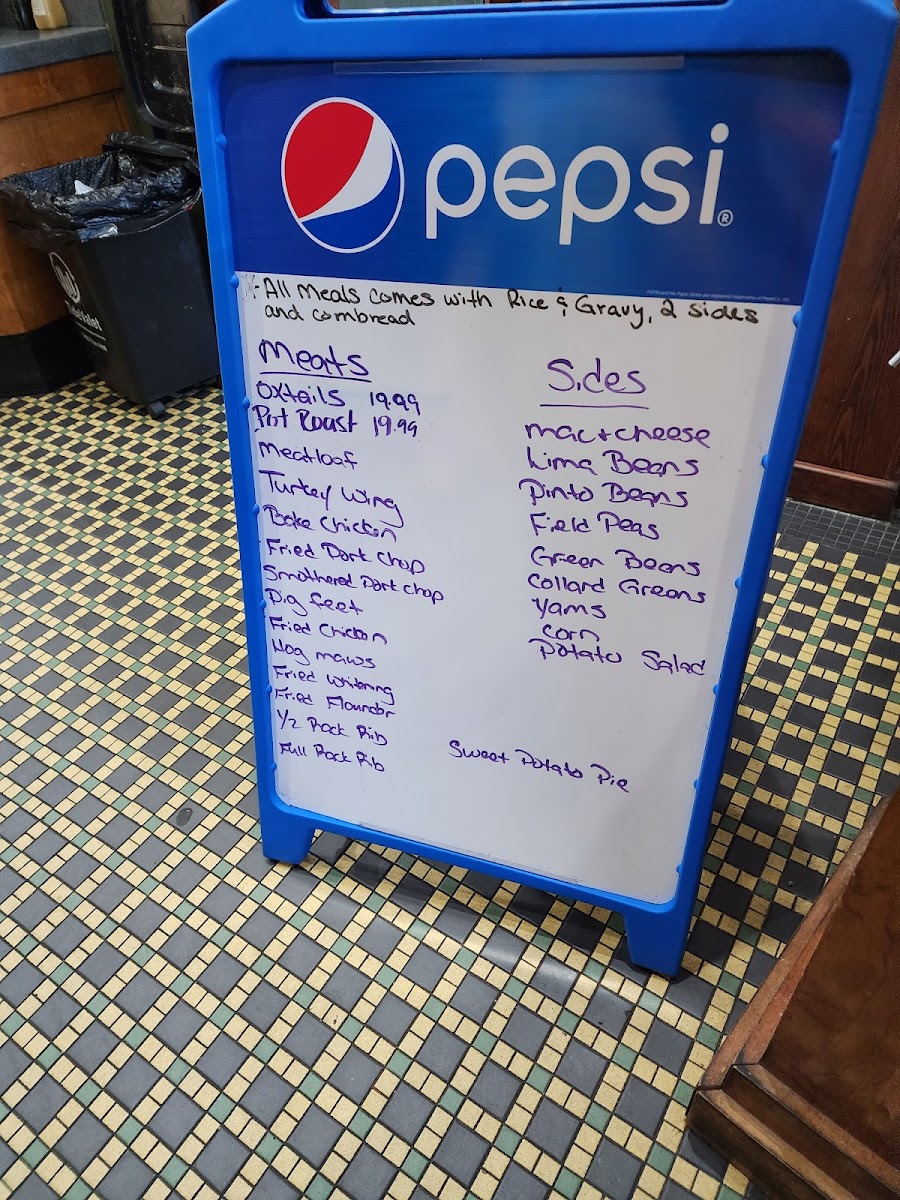 pepsi®
*All Meals comes with Rice & Gravy, 2 sides
and cornbread
Meats
Oxtails 19.99
Pot Roast 19.99
Meatloaf
Turkey Wing
Bake Chicken
Fried Pork Chop
Smothered Pork chop
Pig feet
Fried Chicken
Hog maws
Fried Whitening
Fried Flounder
1/2 Rack Rib
Full Rack Rib
Sides
mac + cheese
Lima Beans
Pinto Beans
Field Peas
Green Beans
Collard Greens
Yams
Corn
Potato Salad
Sweet Potato Pie